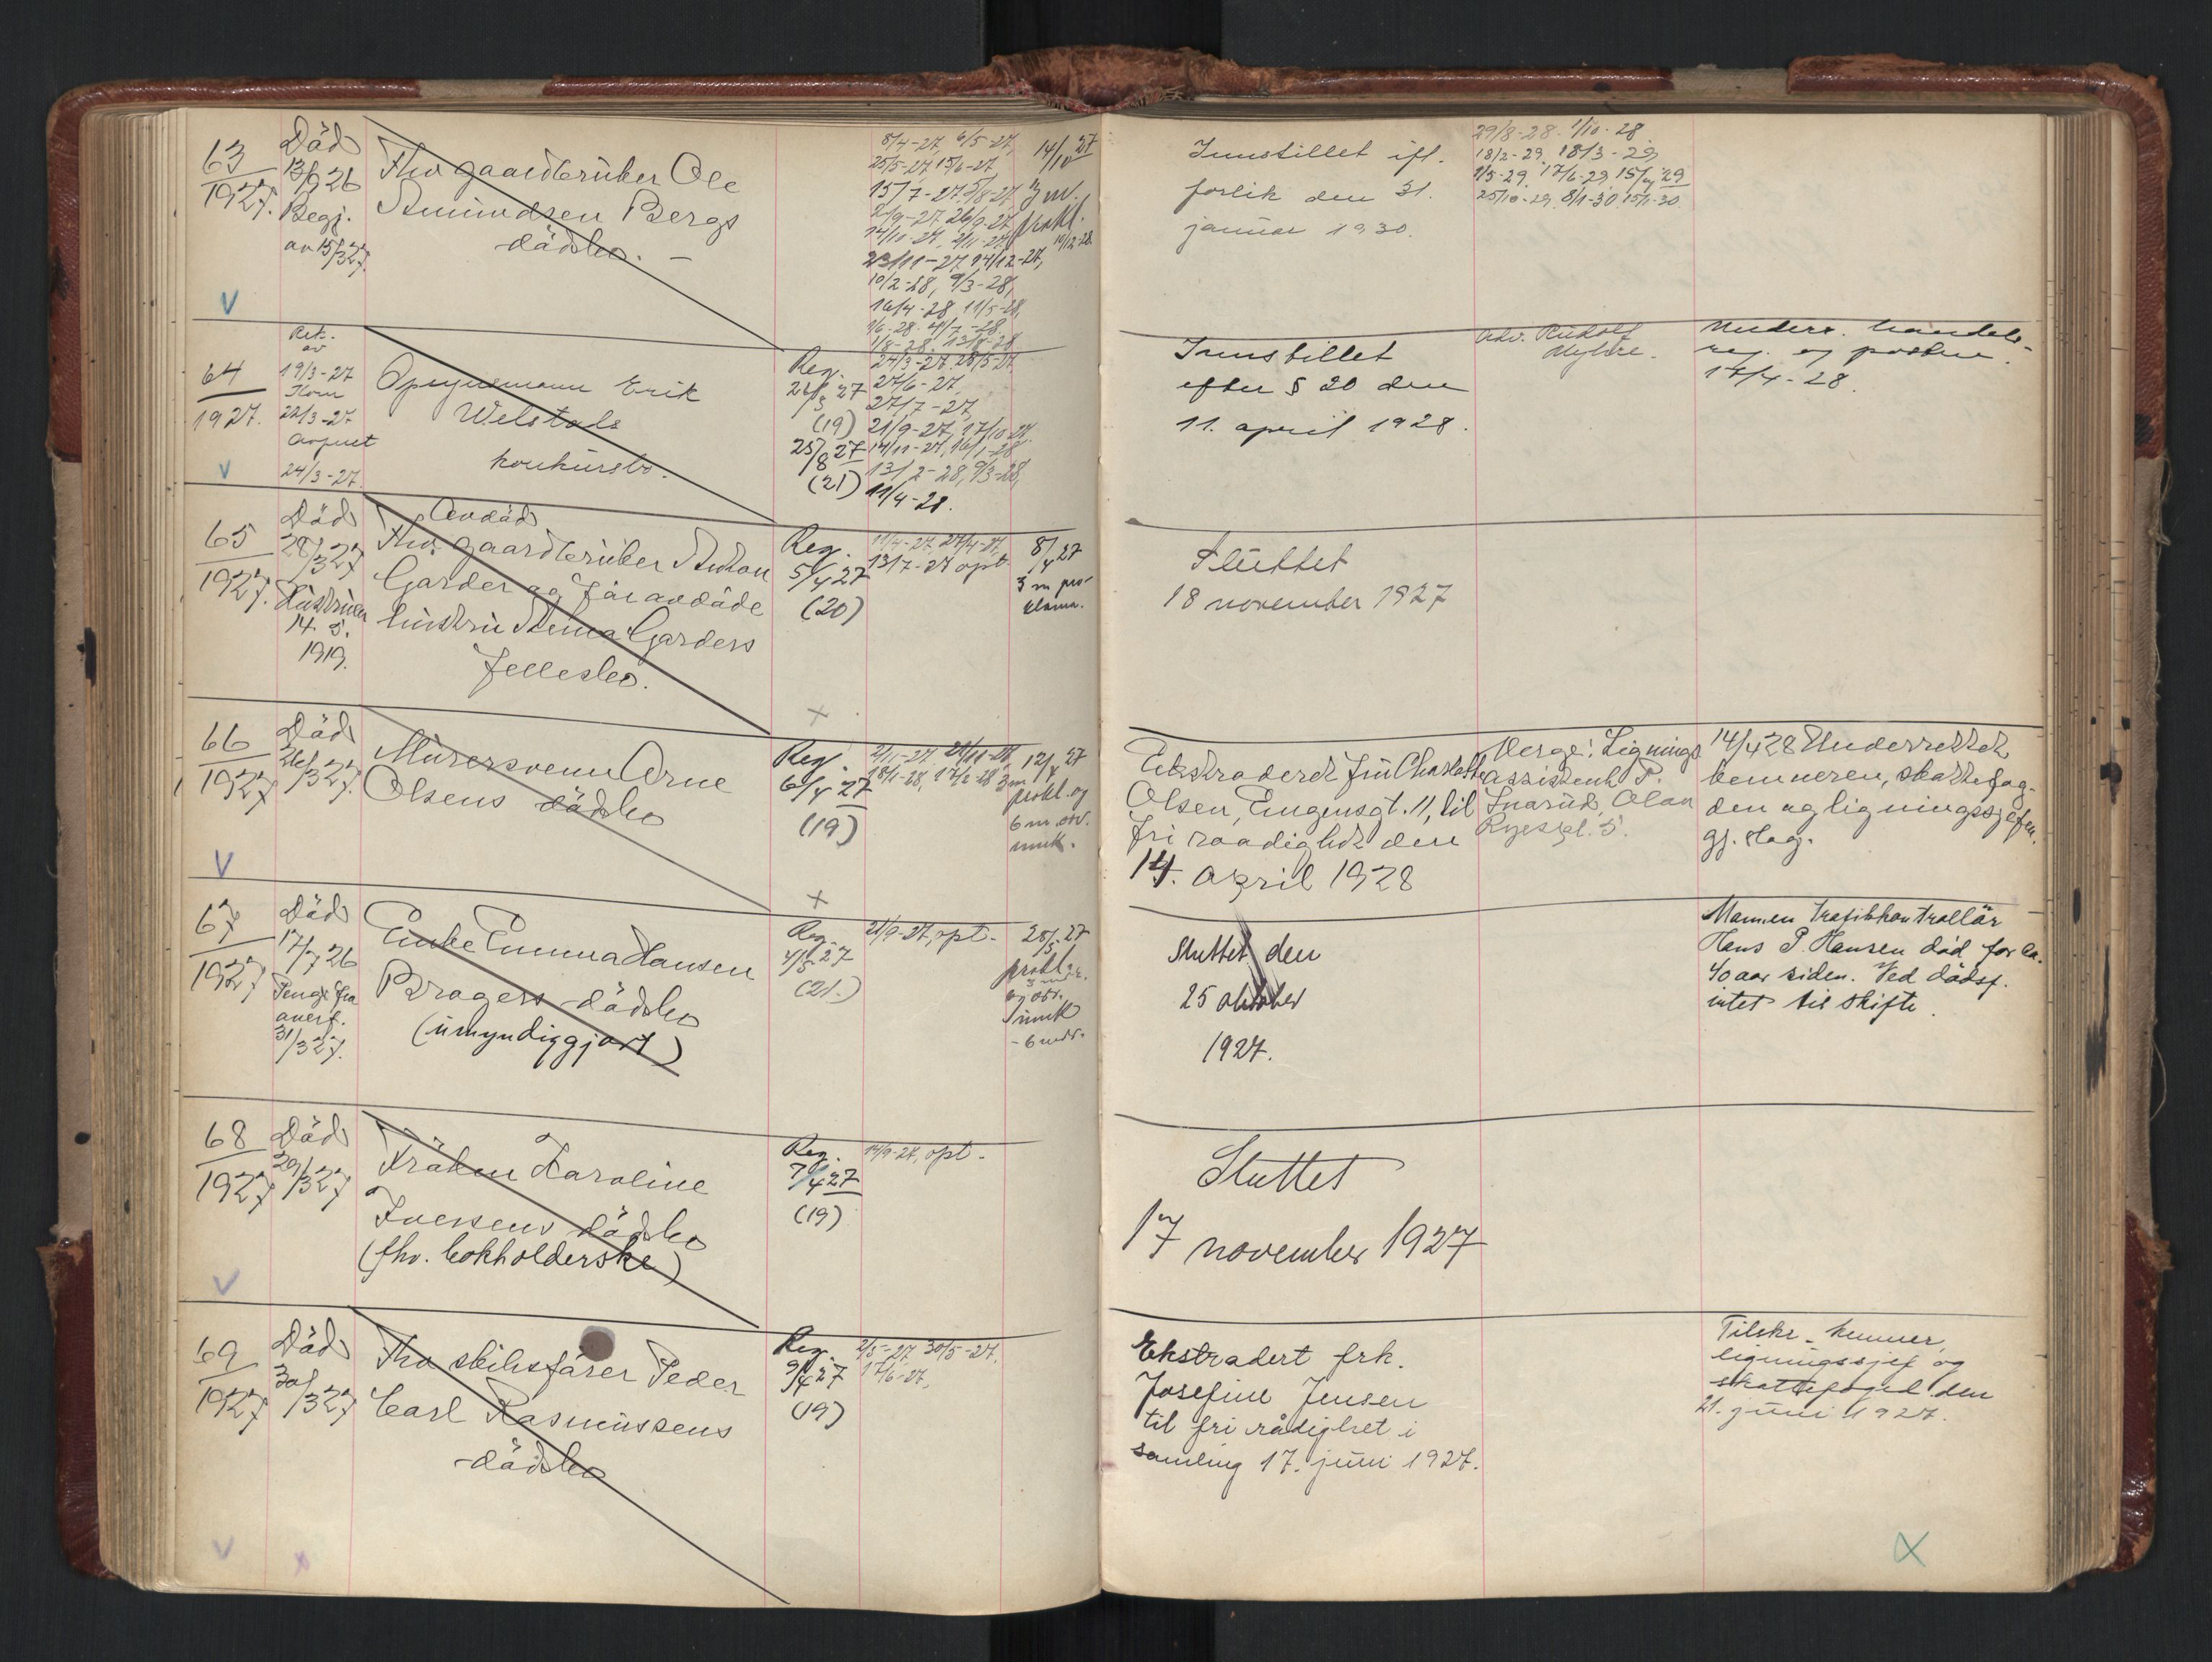 63
1927.
Död
13/9 26
Begj.
av 15/3 27.
Fhv gaardbruker Ole
Amundsen Bergs
dödsbo. -
8/4-27, 6/5-27,
25/5-27 15/6-27
15/7-27.
26/9-27
14/11-27, 2/11-27,
23/11-27 14/12-27,
10/2-28, 9/3-28,
16/4-28 11/5-28,
1/6-28. 4/7-28.
1/8-28. 13/8-28
14/10 27
3 m.
prokl.
10/12-28.
Innstillet ifl.
forlik den 31.
januar 1930.
29/8-28. 1/10-28
18/2-29, 18/3-29
1/5-29, 17/6-29, 15/ 29
25/10-29, 8/1-30, 15/1-30.
64
1927.
Ret.
av
19/3-27
Kom
22/3-27
avgjort
24/3-27.
Erik
Welstads
konkursbo.
Reg.
24/3 27
(19)
25/8 27
(21)
24/3-27. 28/5-27,
27/6-27,
27/7-27,
21/9-27, 17/10-27.
14/11-27, 16/1-28
13/2-28, 9/3-28,
11/4-28.
Innstillet
efter § 20 den
11. april 1928.
Adv. Rudolf
Myhre.
Underr. handels-
reg. og posten.
14/4-28.
65
1927.
Död
28/3 27
Hustruen
14. 5.
1919.
Avdöd
Fhv. gaardbruker Anton
Garder og før avdöde
hustru Garders
fellesbo.
Reg.
5/4 27
(20)
11/4-27, 27/4-27,
13/7-27 opt
8/4 27
3 m pro-
klama.
Sluttet
18 november 1927
66
1927
Död
26/3 27.
Murersvenn Arne
Olsens dödsbo
Reg.
6/4 27
(19)
2/11-27. 24/11-27,
18/1-28, 17/2-28
12/4 27
3 m
prokl. og
6 m. obv.
innk.
Ekstraderet fru Charlotte
Olsen, Eugensgt. 11, til
fri raadighet den
14. april 1928
Verge: Lignings
assistent P.
Snarud, Olav
Ryespl. 5.
14/4 28 Underrettet
kemneren, skattefog-
den og ligningssjefen.
67
1927
Död
17/7 26
Penge fra
overf.
31/3 27.
Enke Emma Hansen
Bragers dödsbo
(umyndiggjort)
Reg.
(21.)
21/9-27, opt.
28/5. 27
prokl.
og obv.
innk
- 6 mdr.
Sluttet den
25 oktober
1927.
Mannen trafikkontrollör
Hans P. Hansen död for ca.
40 aar siden. Ved dödsf.
intet til skifte.
68
1927
Död
29/3 27
Fröken Karoline
Iversens dödsbo
(fhv. bokholderske)
Reg.
7/4 27
(19)
14/9-27, opt.
Sluttet
17 november 1927
69
1927
Död
30/3 27
Fhv skibsförer Peder
Carl Rasmussens
dödsbo
Reg.
9/4 27
(19)
2/5-27, 30/5-27,
17/6-27,
Ekstradert frk.
Josefine Jensen
til fri rådighet i
samling 17. juni 1927.
Tilskr. kemner,
ligningssjef og
skattefoged den
21. juni 1927.